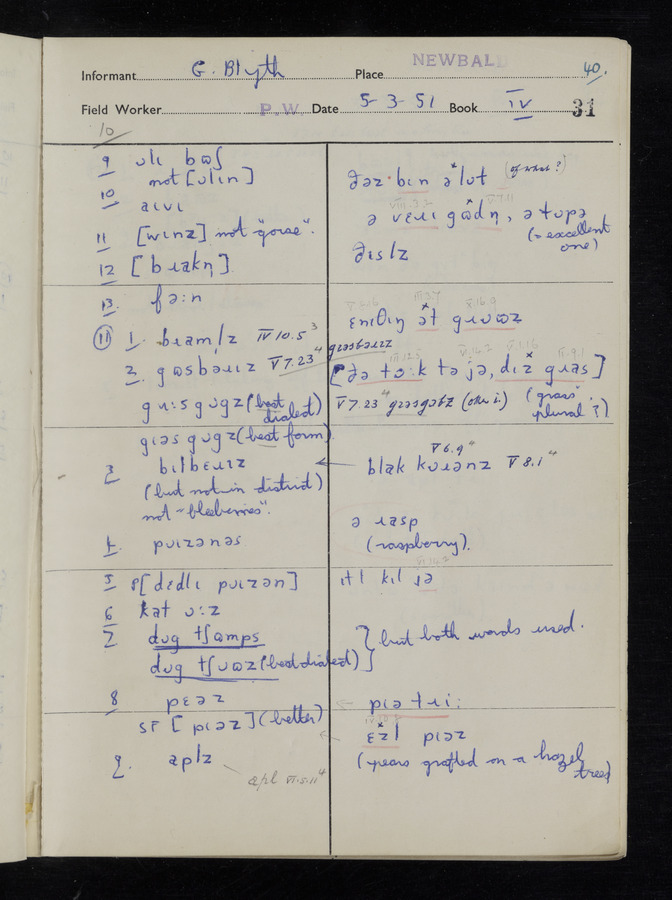 Informant G. Blyth Place NEWBALD 40.
Field Worker P.W. Date 5-3-51 Book IV 31
10
9 ʊlɪ bʊʃ
not [ʊlɪn]
10 aɪvɪ
11 [wɪnz] not "gorse".
12 [bɹakn̩]
13. fəːn
11 1. bɹamlz IV 10.5³
2. gʊsbəɹɪz V 7.23⁴ gɹəsbəɹɪz
gʊgz (best dialect)
gɹəs gʊgz (best form)
3 bɪlbɛɹɪz
(but not in district)
not "bleberries".
4. pʊɪzənəs
5 sʳ [dɛdlɪ pʊɪzən]
6 kat ʊːz
7 dʊg tʃamps
dʊg tʃʊəz (best dialect)
8 pɛəz
sʳ [pɪəz] (better)
9. aplz
apl VI.5.11⁴
ðəz bɪn ə lʊt (of what?)
ə vɛɹɪ gʊdn̩, ə tʊpə
(= excellent one)
ðɪslz
ɛnɪθɪŋ ət gɹʊəz
[ðə tʊːk tə jə, ðɪz gɹəs]
V 7.23⁴ gɹəsgəbz (other i.) (grass plural?)
V 6.9⁴
blak kʊɹənz V 8.1⁴
ə ɹasp
(raspberry).
ɪtl kɪl jə
but both words used.
pɪə tɹiː
ɛzl pɪəz
(pears grafted on a hazel tree)